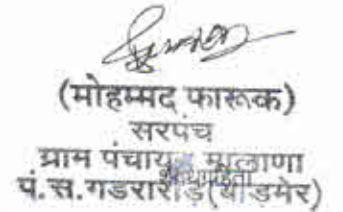 (मोहम्मद फारूक)
सरपंच
ग्राम पंचायत
पं.स.गडरारोड(बाडमेर)